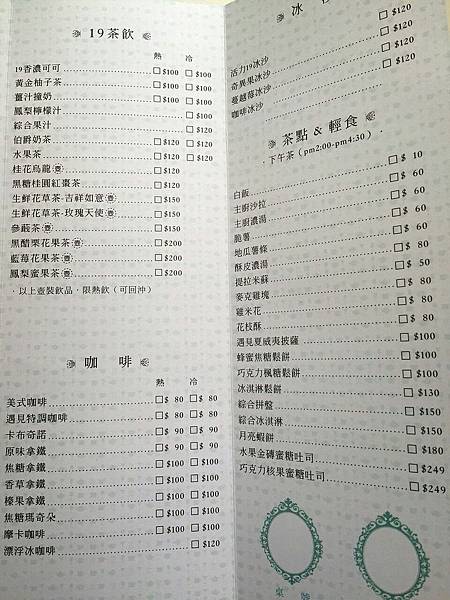 19茶飲
熱 冷
19香濃可可 □$100 □$100
黃金柚子茶 □$100 □$100
薑汁撞奶 □$100 □$100
鳳梨檸檬汁 □$100
綜合果汁 □$120
伯爵奶茶 □$120 □$120
水果茶 □$120 □$120
桂花烏龍㊀壺 □$120
黑糖桂圓紅棗茶 □$120
生鮮花草茶‧吉祥如意(壺) □$150
生鮮花草茶‧玫瑰天使(壺) □$150
參蔘茶(壺) □$150
黑醋栗花果茶(壺) □$200
藍莓花果茶(壺) □$200
鳳梨蜜果茶(壺) □$200
‧以上壺裝飲品‧限熱飲（可回沖）
咖 啡
熱 冷
美式咖啡 □$ 80 □$ 80
遇見特調咖啡 □$ 80 □$ 80
卡布奇諾 □$ 90 □$ 90
原味拿鐵 □$ 90 □$ 90
焦糖拿鐵 □$100 □$100
香草拿鐵 □$100 □$100
榛果拿鐵 □$100 □$100
焦糖瑪奇朵 □$100 □$100
摩卡咖啡 □$100 □$100
漂浮冰咖啡 □$120
冰
活力19冰沙 □$120
奇異果冰沙 □$120
蔓越莓冰沙 □$120
咖啡冰沙 □$120
茶點&輕食
‧下午茶（pm2:00-pm4:30）‧
白飯 □$ 10
主廚沙拉 □$ 60
主廚濃湯 □$ 60
脆薯 □$ 60
地瓜薯條 □$ 80
酥皮濃湯 □$ 80
提拉米蘇 □$ 50
麥克雞塊 □$ 80
雞米花 □$ 80
花枝酥 □$ 80
遇見夏威夷披薩 □$100
蜂蜜焦糖鬆餅 □$100
巧克力楓糖鬆餅 □$100
冰淇淋鬆餅 □$130
綜合拼盤 □$150
綜合冰淇淋 □$150
月亮蝦餅 □$180
水果金磚蜜糖吐司 □$249
巧克力核果蜜糖吐司 □$249